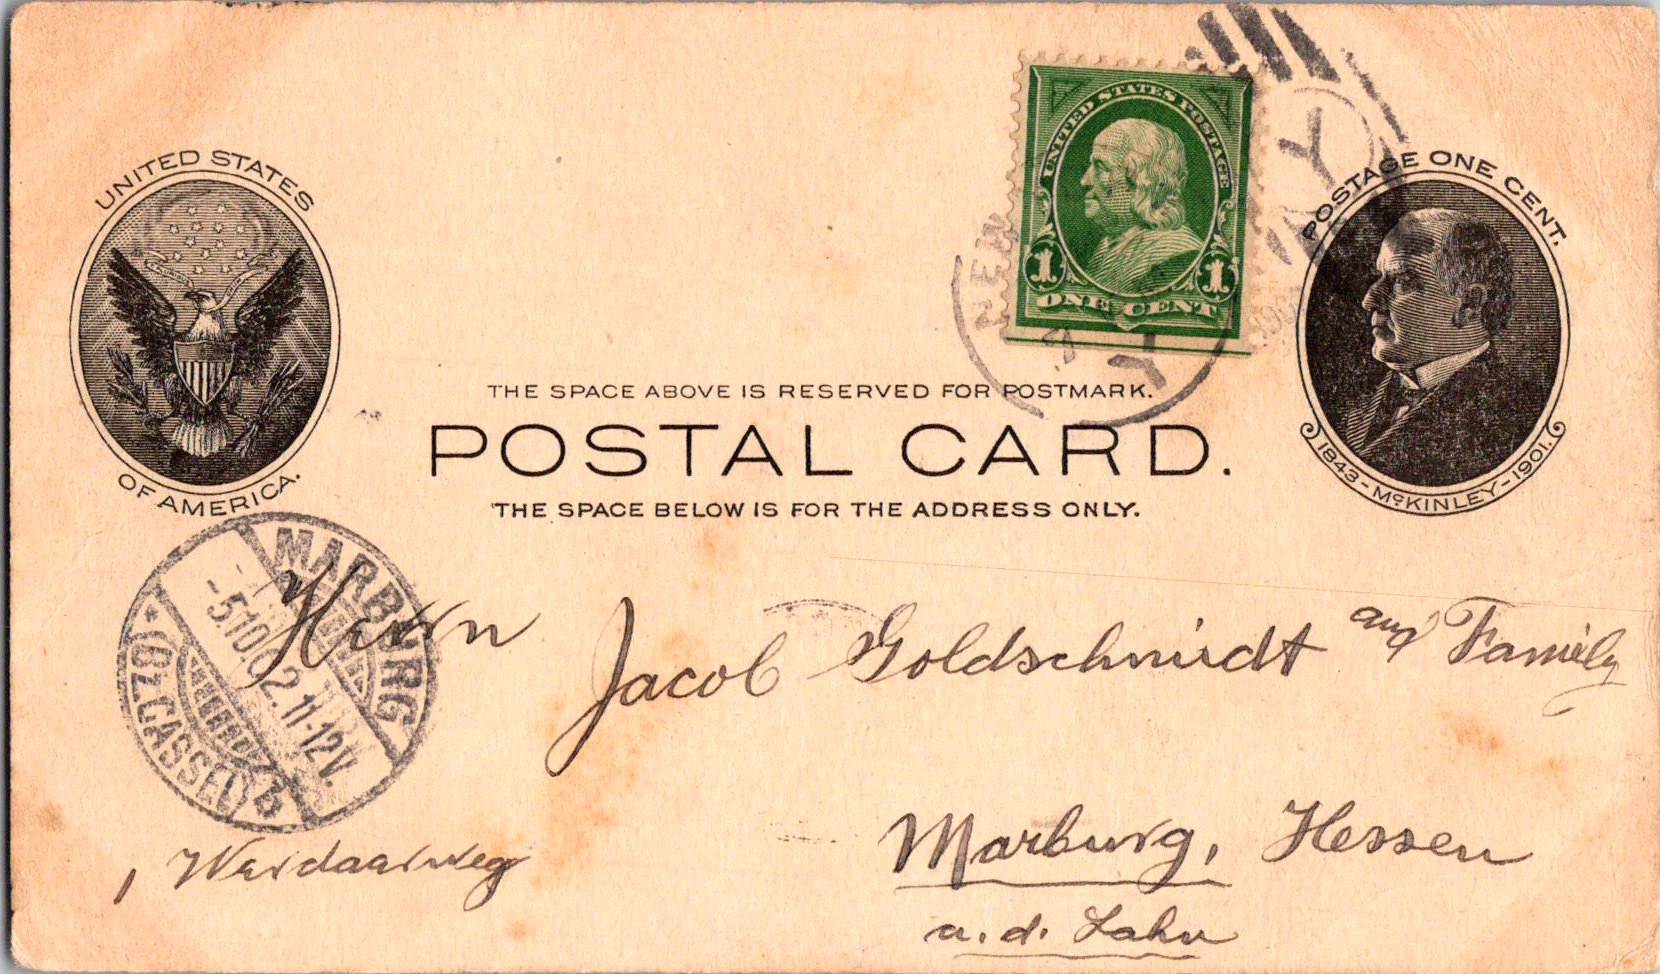 UNITED STATES
OF AMERICA.
UNITED STATES POSTAGE
1 1
ONE CENT
NEW
N Y
POSTAGE ONE CENT.
1843-McKINLEY-1901.
THE SPACE ABOVE IS RESERVED FOR POSTMARK.
POSTAL CARD.
THE SPACE BELOW IS FOR THE ADDRESS ONLY.
MARBURG
-5.10.02.11-12V.
*(BZ.CASSEL) 3
Herrn
Jacob Goldschmidt and Family
Marburg, Hessen
a. d. Lahn